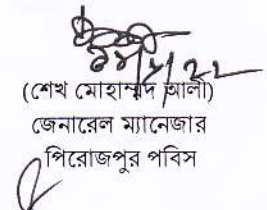 (শেখ মোহাম্মদ আলী)
জেনারেল ম্যানেজার
পিরোজপুর পবিস